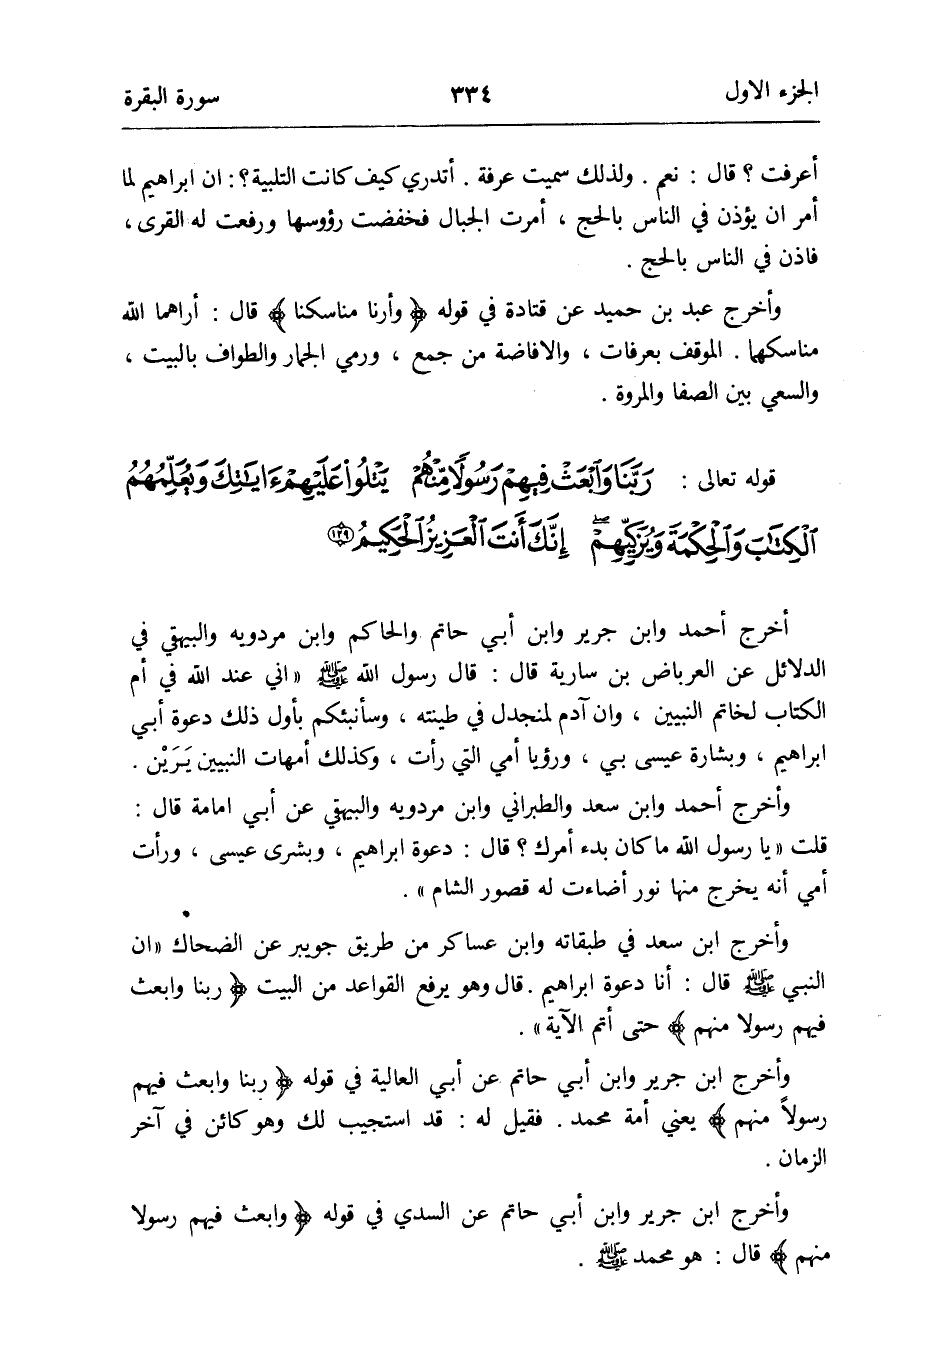 الجزء الاول ٣٣٤ سورة البقرة
أعرفت ؟ قال : نعم . ولذلك سميت عرفة . أتدري كيف كانت التلبية ؟ : ان ابراهيم لما
أمر ان يؤذن في الناس بالحج ، أمرت الجبال فخفضت رؤوسها ورفعت له القرى ،
فاذن في الناس بالحج .
وأخرج عبد بن حميد عن قتادة في قوله ﴿ وأرنا مناسكنا ﴾ قال : أراهما الله
مناسكهما . الموقف بعرفات ، والافاضة من جمع ، ورمي الجمار والطواف بالبيت ،
والسعي بين الصفا والمروة .
قوله تعالى : رَبَّنَا وَٱبْعَثْ فِيهِمْ رَسُولًا مِّنْهُمْ يَتْلُوا۟ عَلَيْهِمْ ءَايَٰتِكَ وَيُعَلِّمُهُمُ
ٱلْكِتَٰبَ وَٱلْحِكْمَةَ وَيُزَكِّيهِمْ ۖ إِنَّكَ أَنتَ ٱلْعَزِيزُ ٱلْحَكِيمُ ﴿١٢٩﴾
أخرج أحمد وابن جرير وابن أبي حاتم والحاكم وابن مردويه والبيهقي في
الدلائل عن العرباض بن سارية قال : قال رسول الله ﷺ « اني عند الله في أم
الكتاب لخاتم النبيين ، وان آدم لمنجدل في طينته ، وسأنبئكم بأول ذلك دعوة أبي
ابراهيم ، وبشارة عيسى بي ، ورؤيا أمي التي رأت ، وكذلك أمهات النبيين يَرَيْن .
وأخرج أحمد وابن سعد والطبراني وابن مردويه والبيهقي عن أبي امامة قال :
قلت « يا رسول الله ما كان بدء أمرك ؟ قال : دعوة ابراهيم ، وبشرى عيسى ، ورأت
أمي أنه يخرج منها نور أضاءت له قصور الشام » .
وأخرج ابن سعد في طبقاته وابن عساكر من طريق جويبر عن الضحاك « ان
النبي ﷺ قال : أنا دعوة ابراهيم . قال وهو يرفع القواعد من البيت ﴿ ربنا وابعث
فيهم رسولا منهم ﴾ حتى أتم الآية » .
وأخرج ابن جرير وابن أبي حاتم عن أبي العالية في قوله ﴿ ربنا وابعث فيهم
رسولاً منهم ﴾ يعني أمة محمد . فقيل له : قد استجيب لك وهو كائن في آخر
الزمان .
وأخرج ابن جرير وابن أبي حاتم عن السدي في قوله ﴿ وابعث فيهم رسولا
منهم ﴾ قال : هو محمد ﷺ .